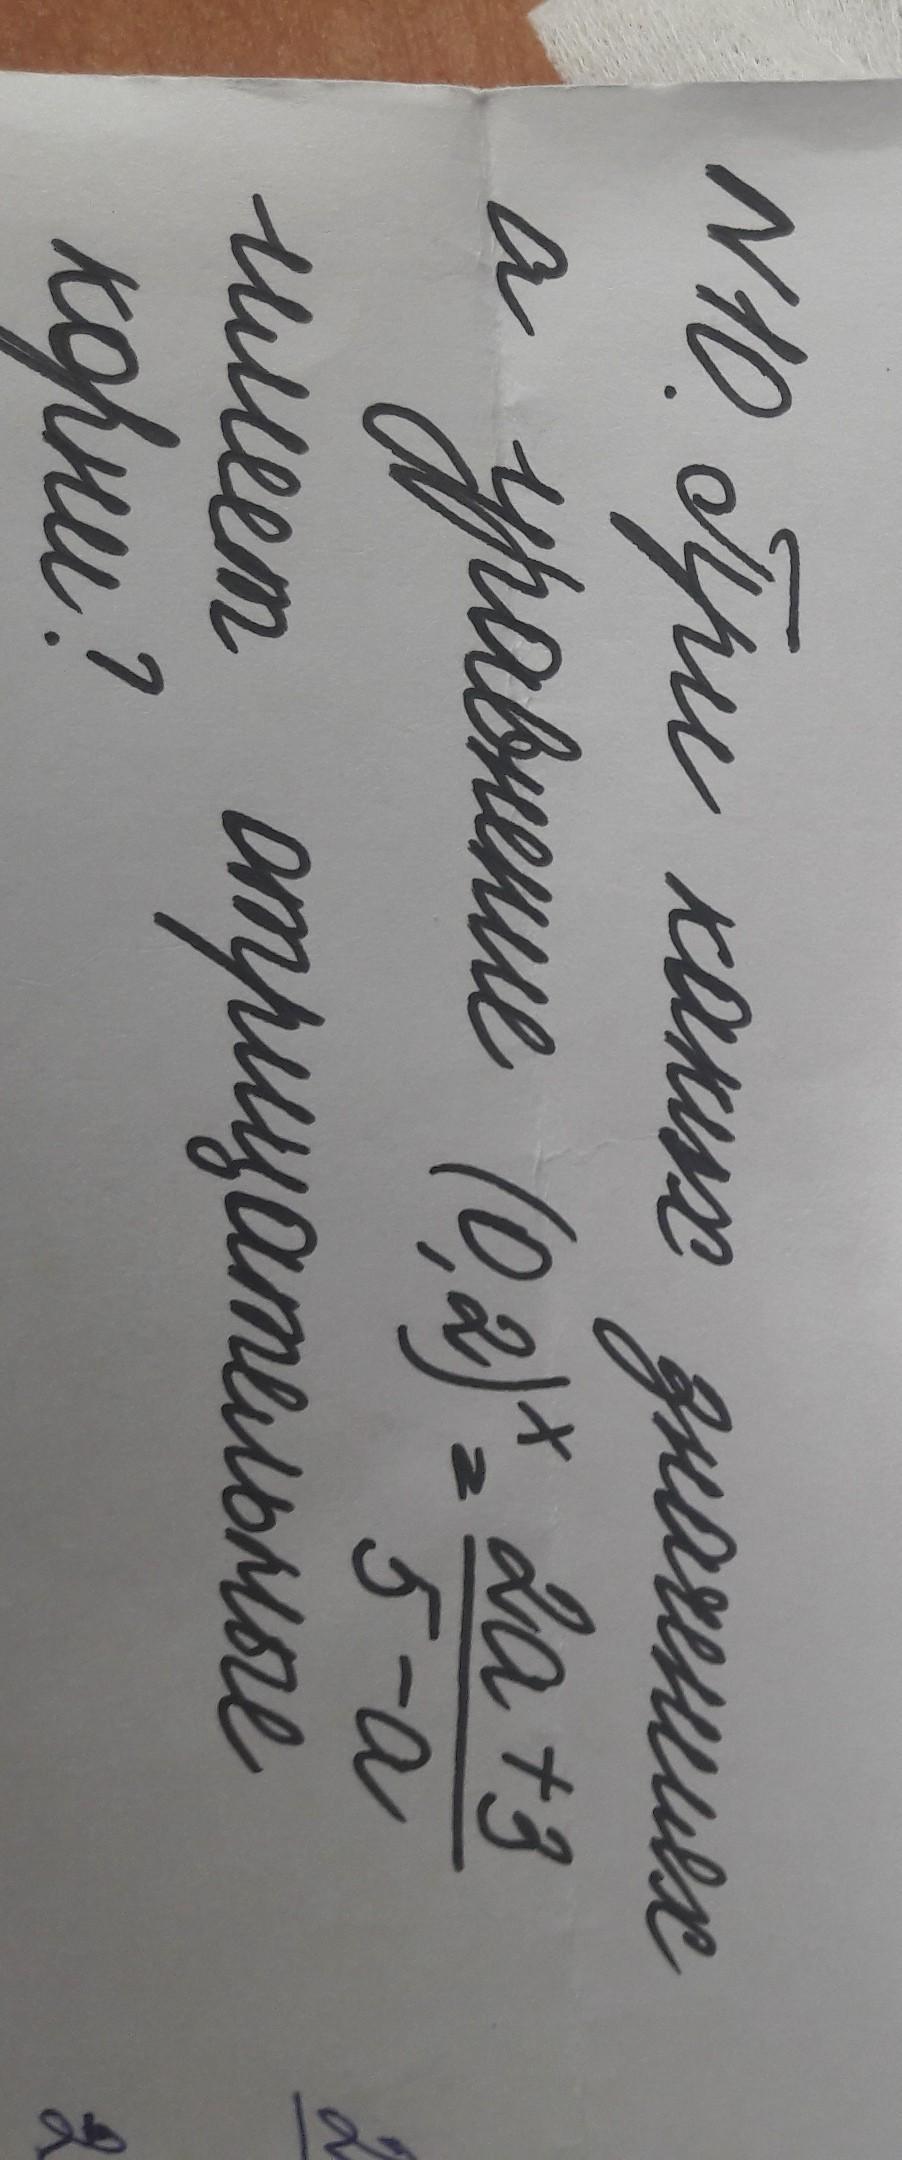 N10. При каких значениях
а уравнение (0,2)^x = \frac{2a+3}{5-a}
имеет отрицательные
корни?
2
2